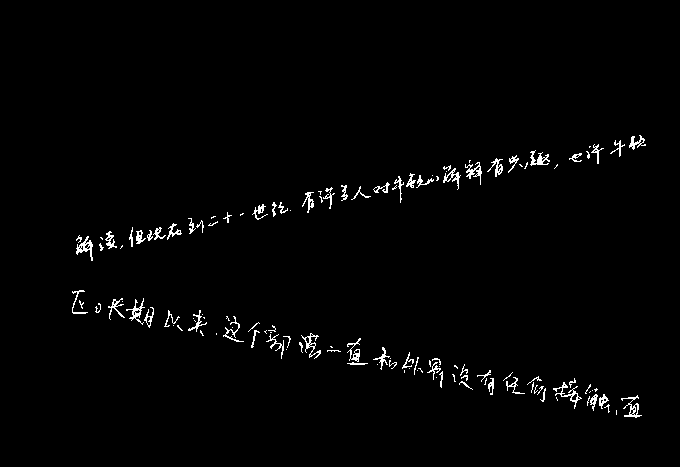 解读,但现在到二十一世纪.有许多人对牛顿的解释有兴趣,也许牛顿
区。长期以来,这个部落一直和外界没有任何接触,直